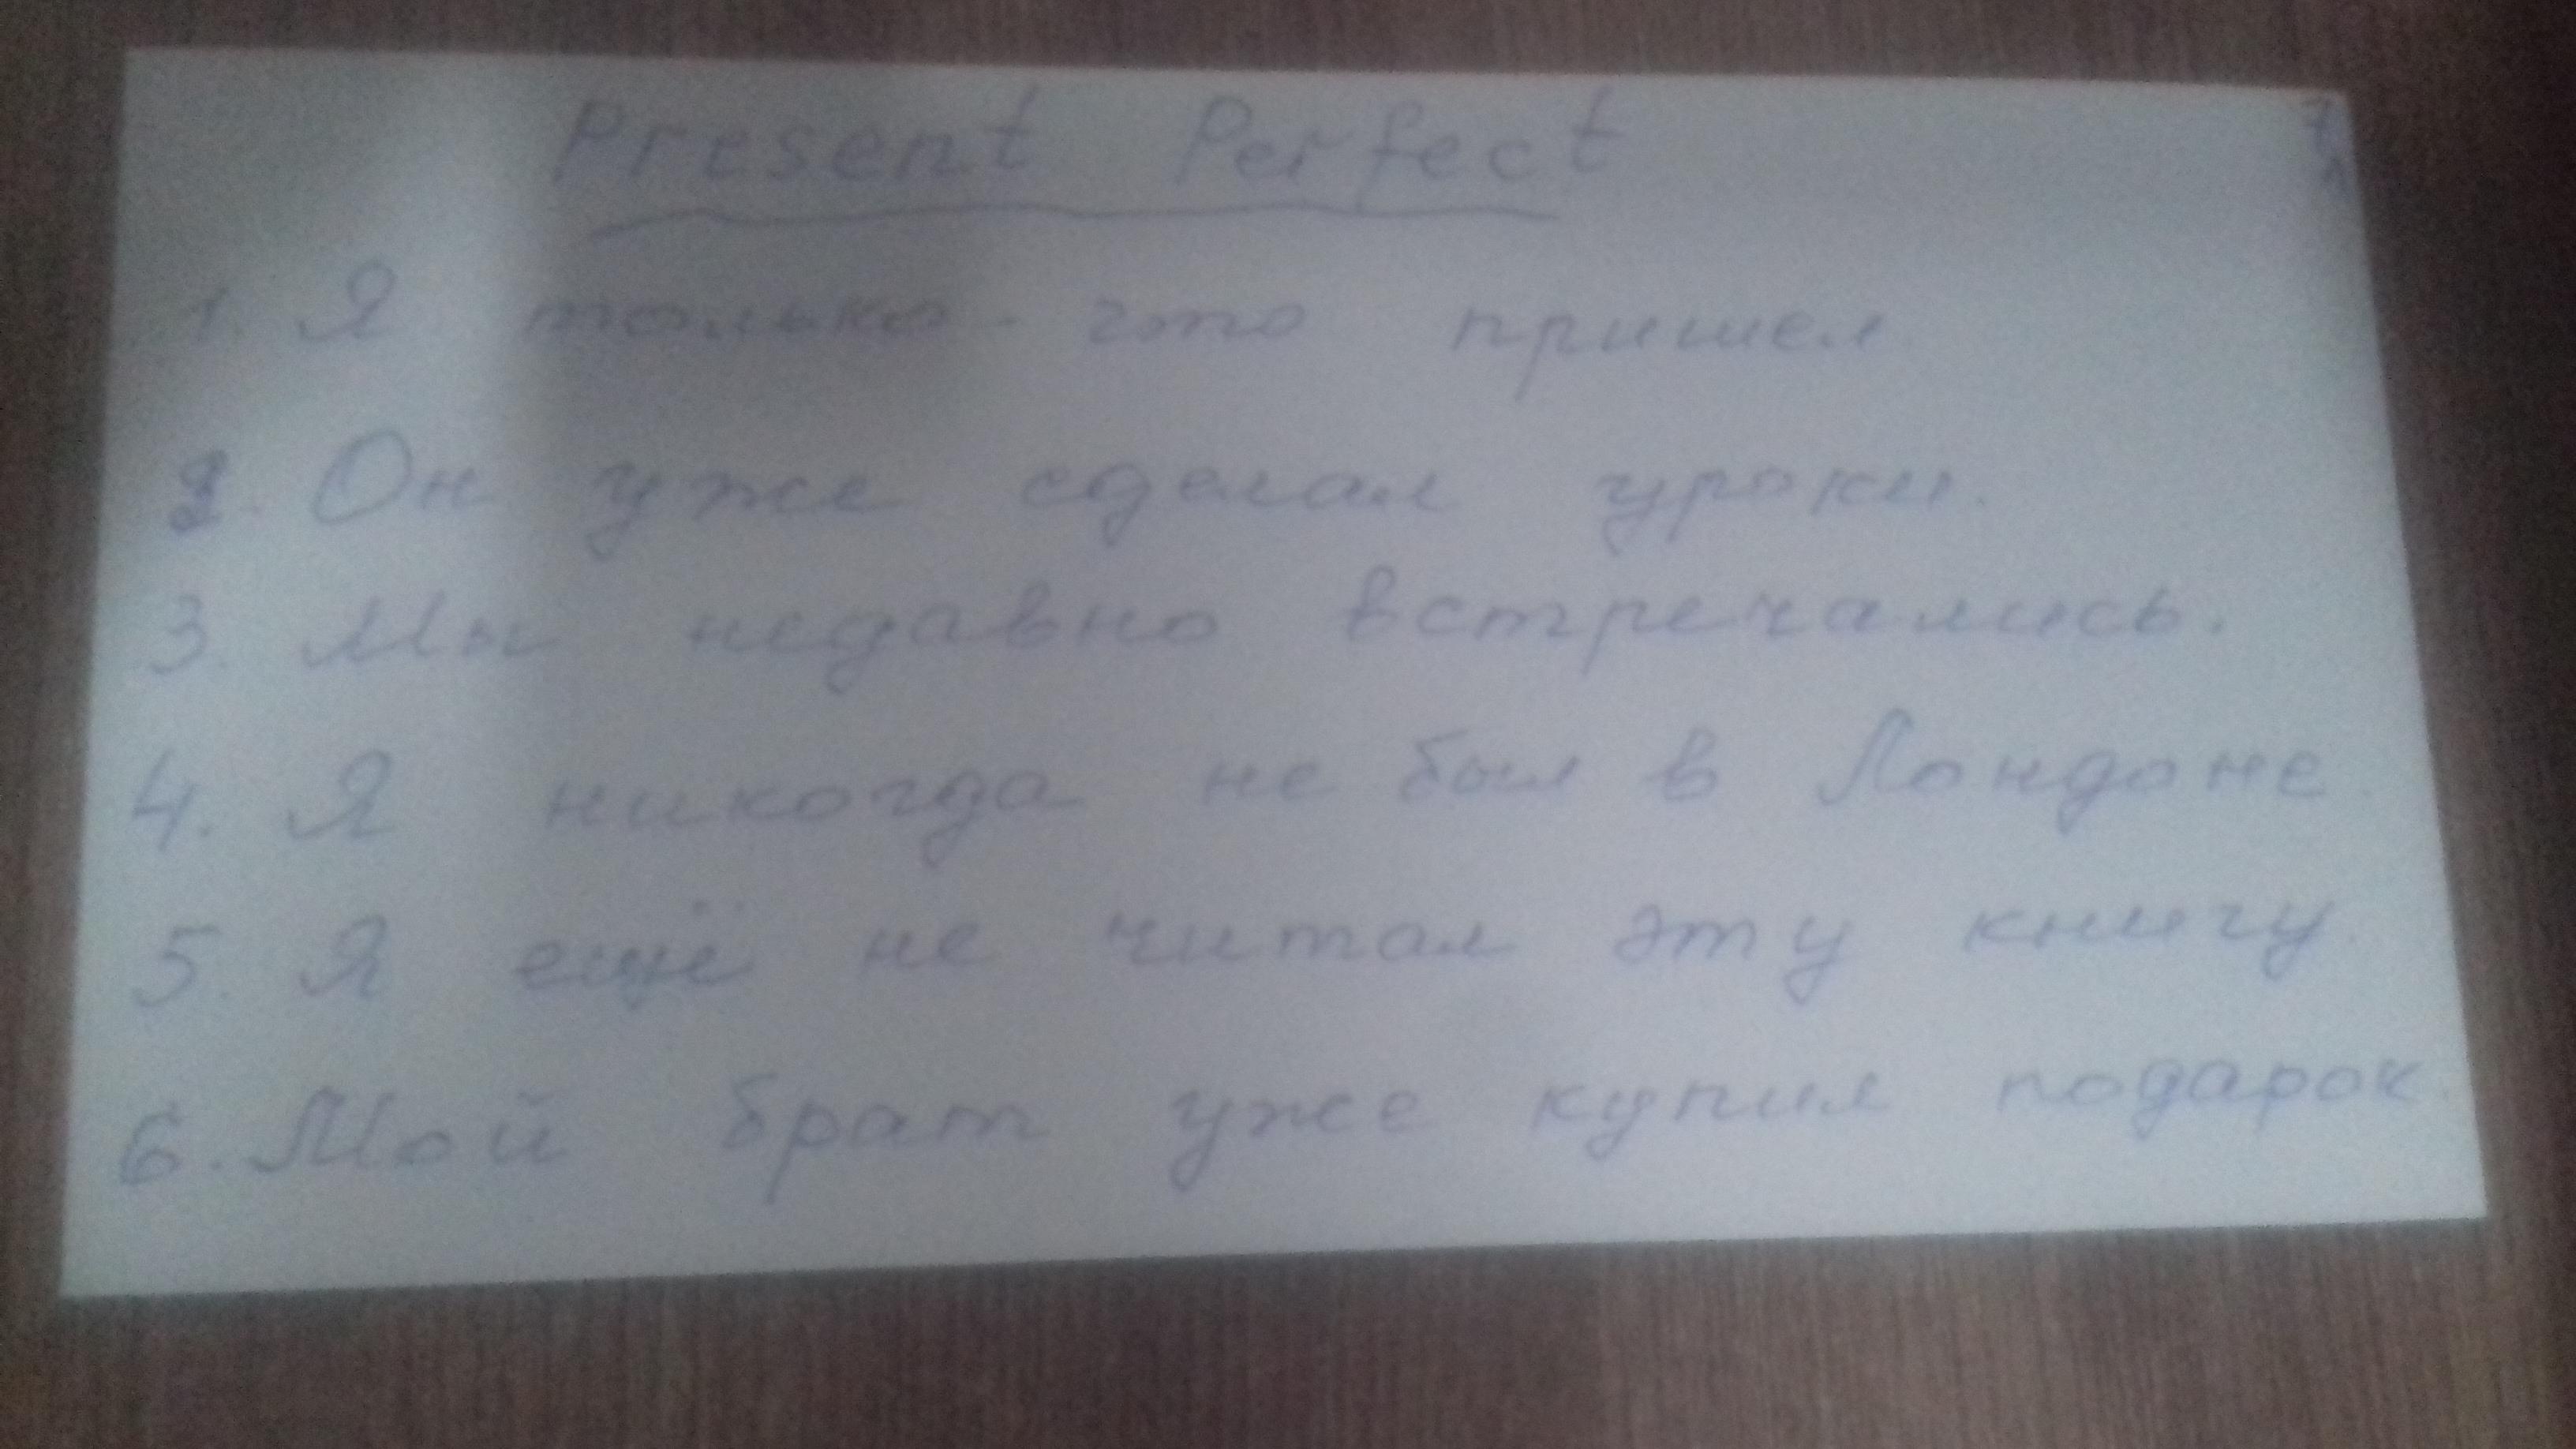 Present Perfect
1. Я только - что пришел
2. Он уже сделал уроки.
3. Мы недавно встречались.
4. Я никогда не был в Лондоне.
5. Я ещё не читал эту книгу.
6. Мой брат уже купил подарок.